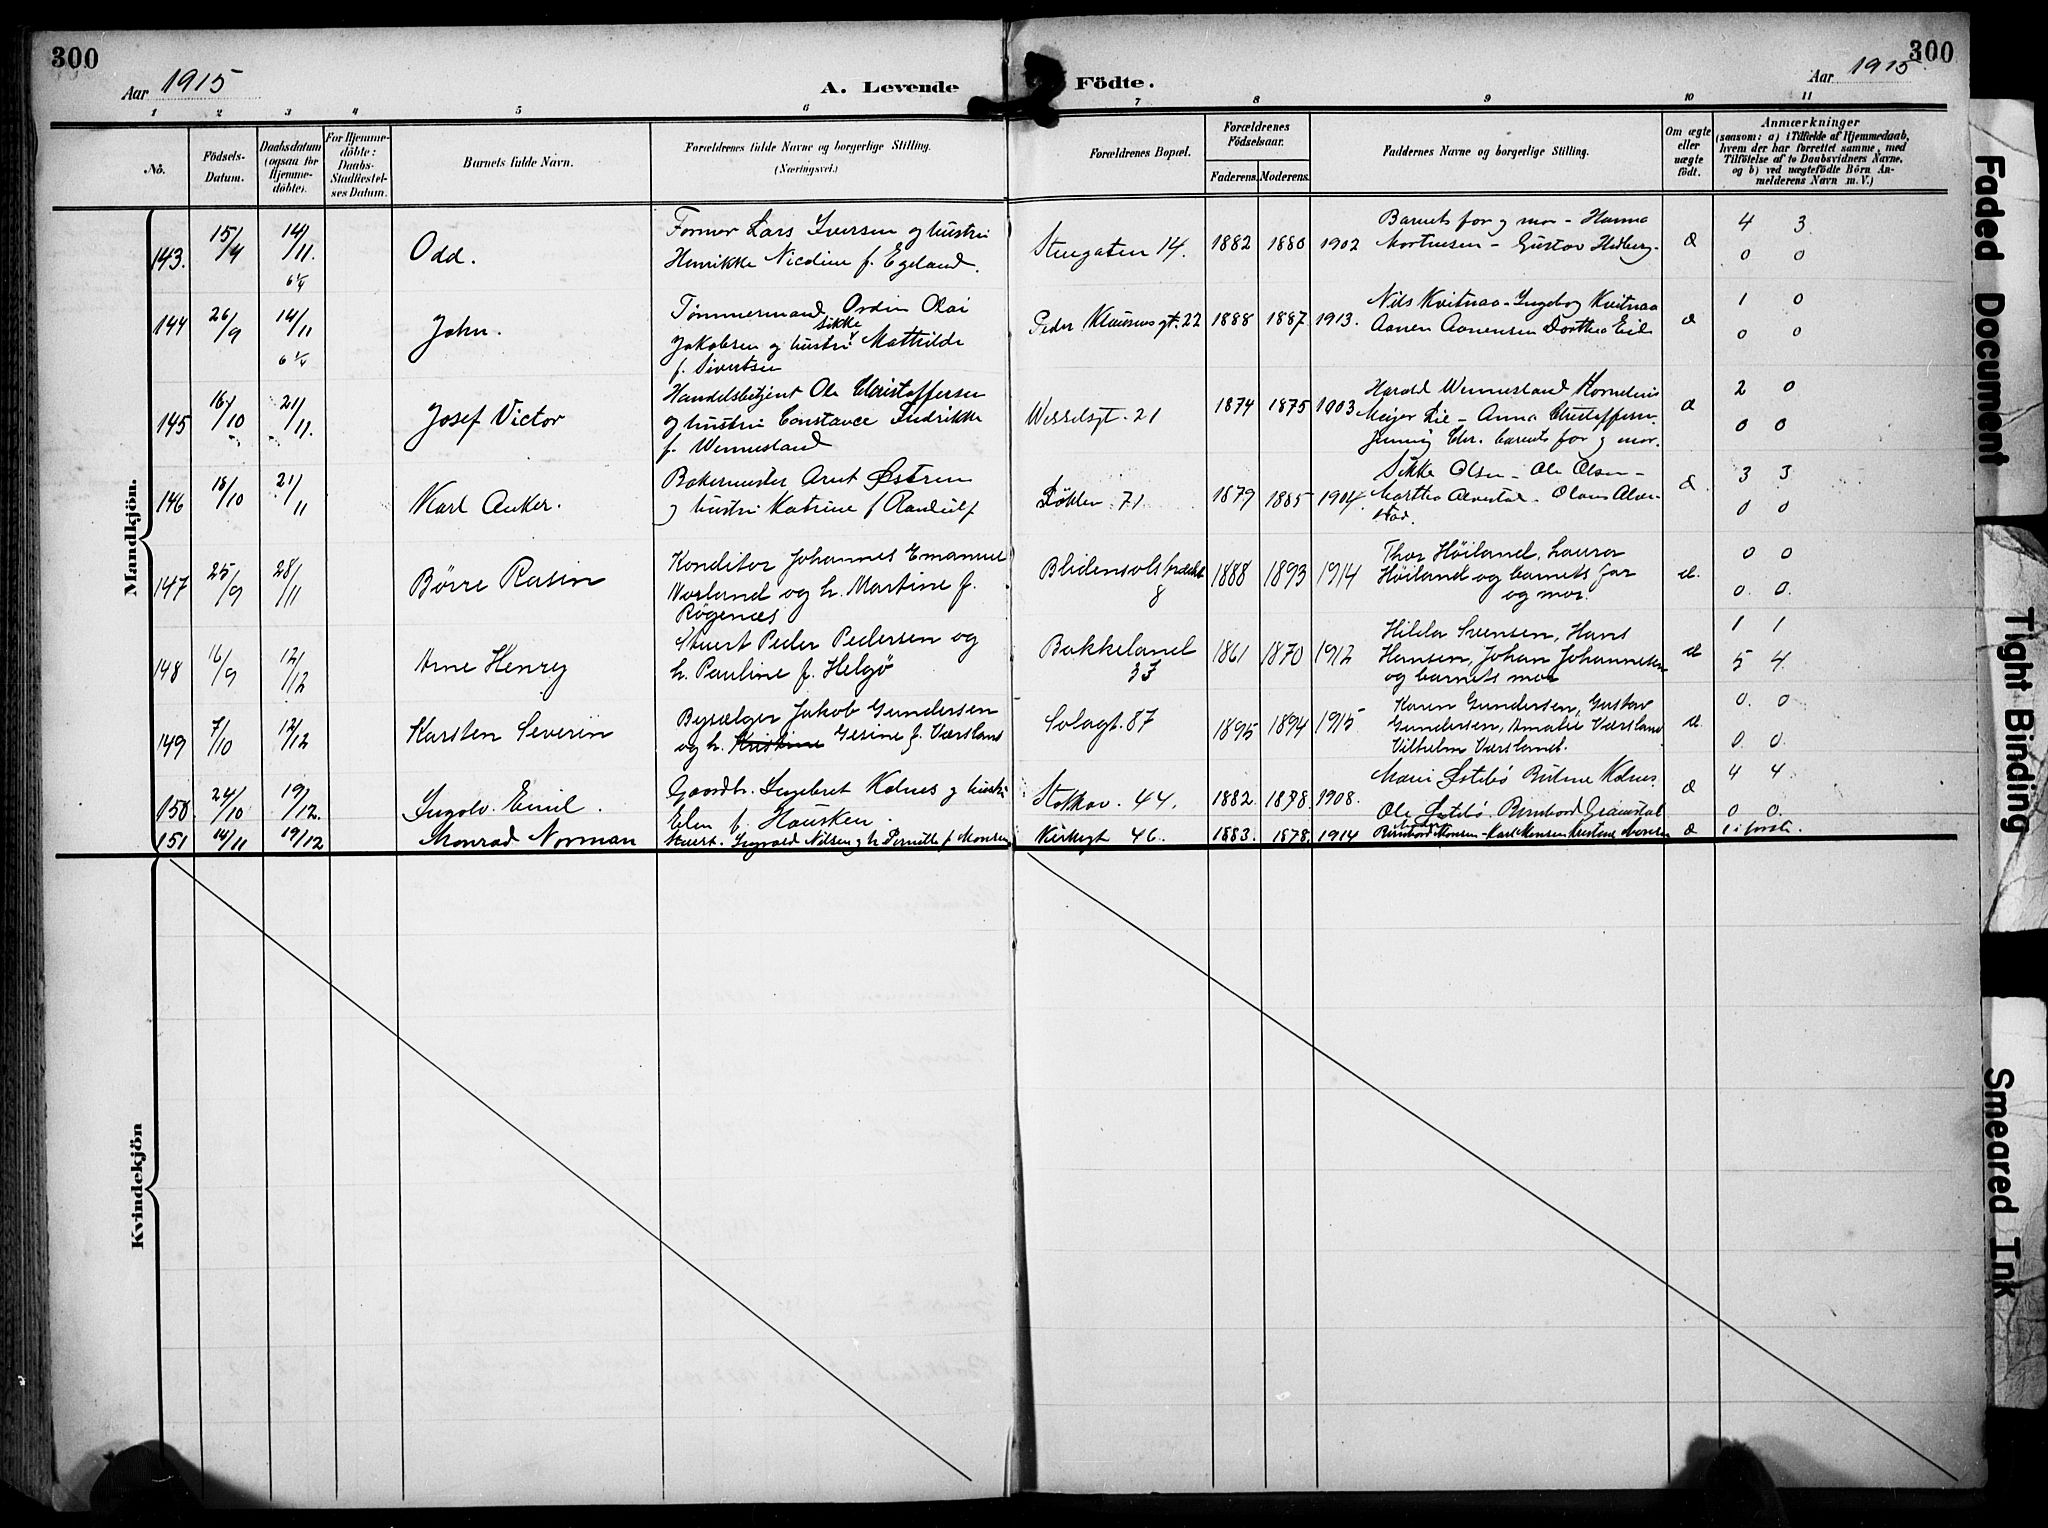 300
300
Aar 1915
A. Levende
Födte.
Aar 1915
1 2 3 4 5 6 7 8 9 10 11
No.
Födsels-
Datum.
Daabsdatum
(ogsaa for
Hjemme-
döbte).
For Hjemme-
döbte:
Daabs-
Stadfæstel-
ses Datum.
Barnets fulde Navn.
Forældrenes fulde Navne og borgerlige Stilling.
(Næringsvei.)
Forældrenes Bopæl.
Forældrenes
Födselsaar.
Faderens. Moderens.
Faddernes Navne og borgerlige Stilling.
Om ægte
eller
uægte
födt.
Anmærkninger
(saasom: a) i Tilfælde af Hjemmedaab,
hvem der har forrettet samme, med
Tilföielse af to Daabsvidners Navne,
og b) ved uægtefödte Börn An-
melderens Navn m. V.)
Mandkjön.
143. 15/4 14/11. 6¼ Odd.
Former Lars Iversen og hustru
Henrikke Nicoline f. Egeland.
Stengaten 14. 1882 1880 1902
Barnets far og mor - Hanna
Mortensen - Gustav Hidberg.
æ 4 3.
0 0
144 26/9 14/11 6¼ John.
Tømmermand Ordin Olai
Jakobsen og hustru Sikke Mathilde
f. Sivertsen
Peder Klausens gt. 22 1888 1887 1913.
Nils Kvitnaa - Ingeborg Kvitnaa
Aanen Aanensen Dorthea Eid
æ 1 0
0 0
145 16/10 21/11. Josef Victor
Handelsbetjent Ole Christoffersen
og hustru Constance Fredrikke
f. Wennesland
Wesselsgt. 21 1874 1875 1903
Harald Wennesland Kornelius
Meijer Lie - Anna Christoffersen.
Jenny Chr. barnets far og mor.
æ 2 0
0 0
146 18/10 21/11 Karl Anker.
Bakermester Arnt Østrem
og hustru Katrine f Randulf
Løkken 71 1879 1885 1904.
Sikke Olsen - Ole Olsen -
Martha Alvestad - Olaus Alve-
stad.
æ 3 3
0 0
147 25/9 28/11 Børre Rasin
Konditor Johannes Emanuel
Norland og h. Martine f.
Røgenæs
Blidensols
8 1888 1893 1914
Thor Høiland, Laura
Høiland og barnets far
og mor.
æ. 0 0
0. 0.
148 16/9 12/12 Arne Henry
Stuert Peder Pedersen og
h. Pauline f. Helgø
Bakkeland
33 1861 1870 1912
Hilda Svensen, Hans
Hansen, Johan Johannesen
og barnets mor
æ 1 1
5 4
149 7/10 12/12 Karsten Severin
Bysælger Jakob Gundersen
og h. Kristine Gesine f. Værsland
Solagt. 87 1895 1894 1915
Karen Gundersen, Gustav
Gundersen, Amalie Værsland
Vilhelm Værsland.
æ. 0. 0
0. 0.
150. 24/10 19/12. Ingolv Emil.
Gaardbr. Ingebret Kolnes og hustru
Elen f. Hausken.
Stokkav. 44. 1882. 1878. 1908.
Marie Østebø Kolnes.
Ole Østebø.
æ 4 4.
0 0.
151 14/11 19/12 Monrad Norman
Stuert. Ingvald Nilsen og h. Pernille f Monsen
Kirkegt 46. 1883. 1878. 1914
Karl Monsen Monsen
æ 1 i første.
Kvindekjön
Faded Document
Tight Binding
Smeared Ink